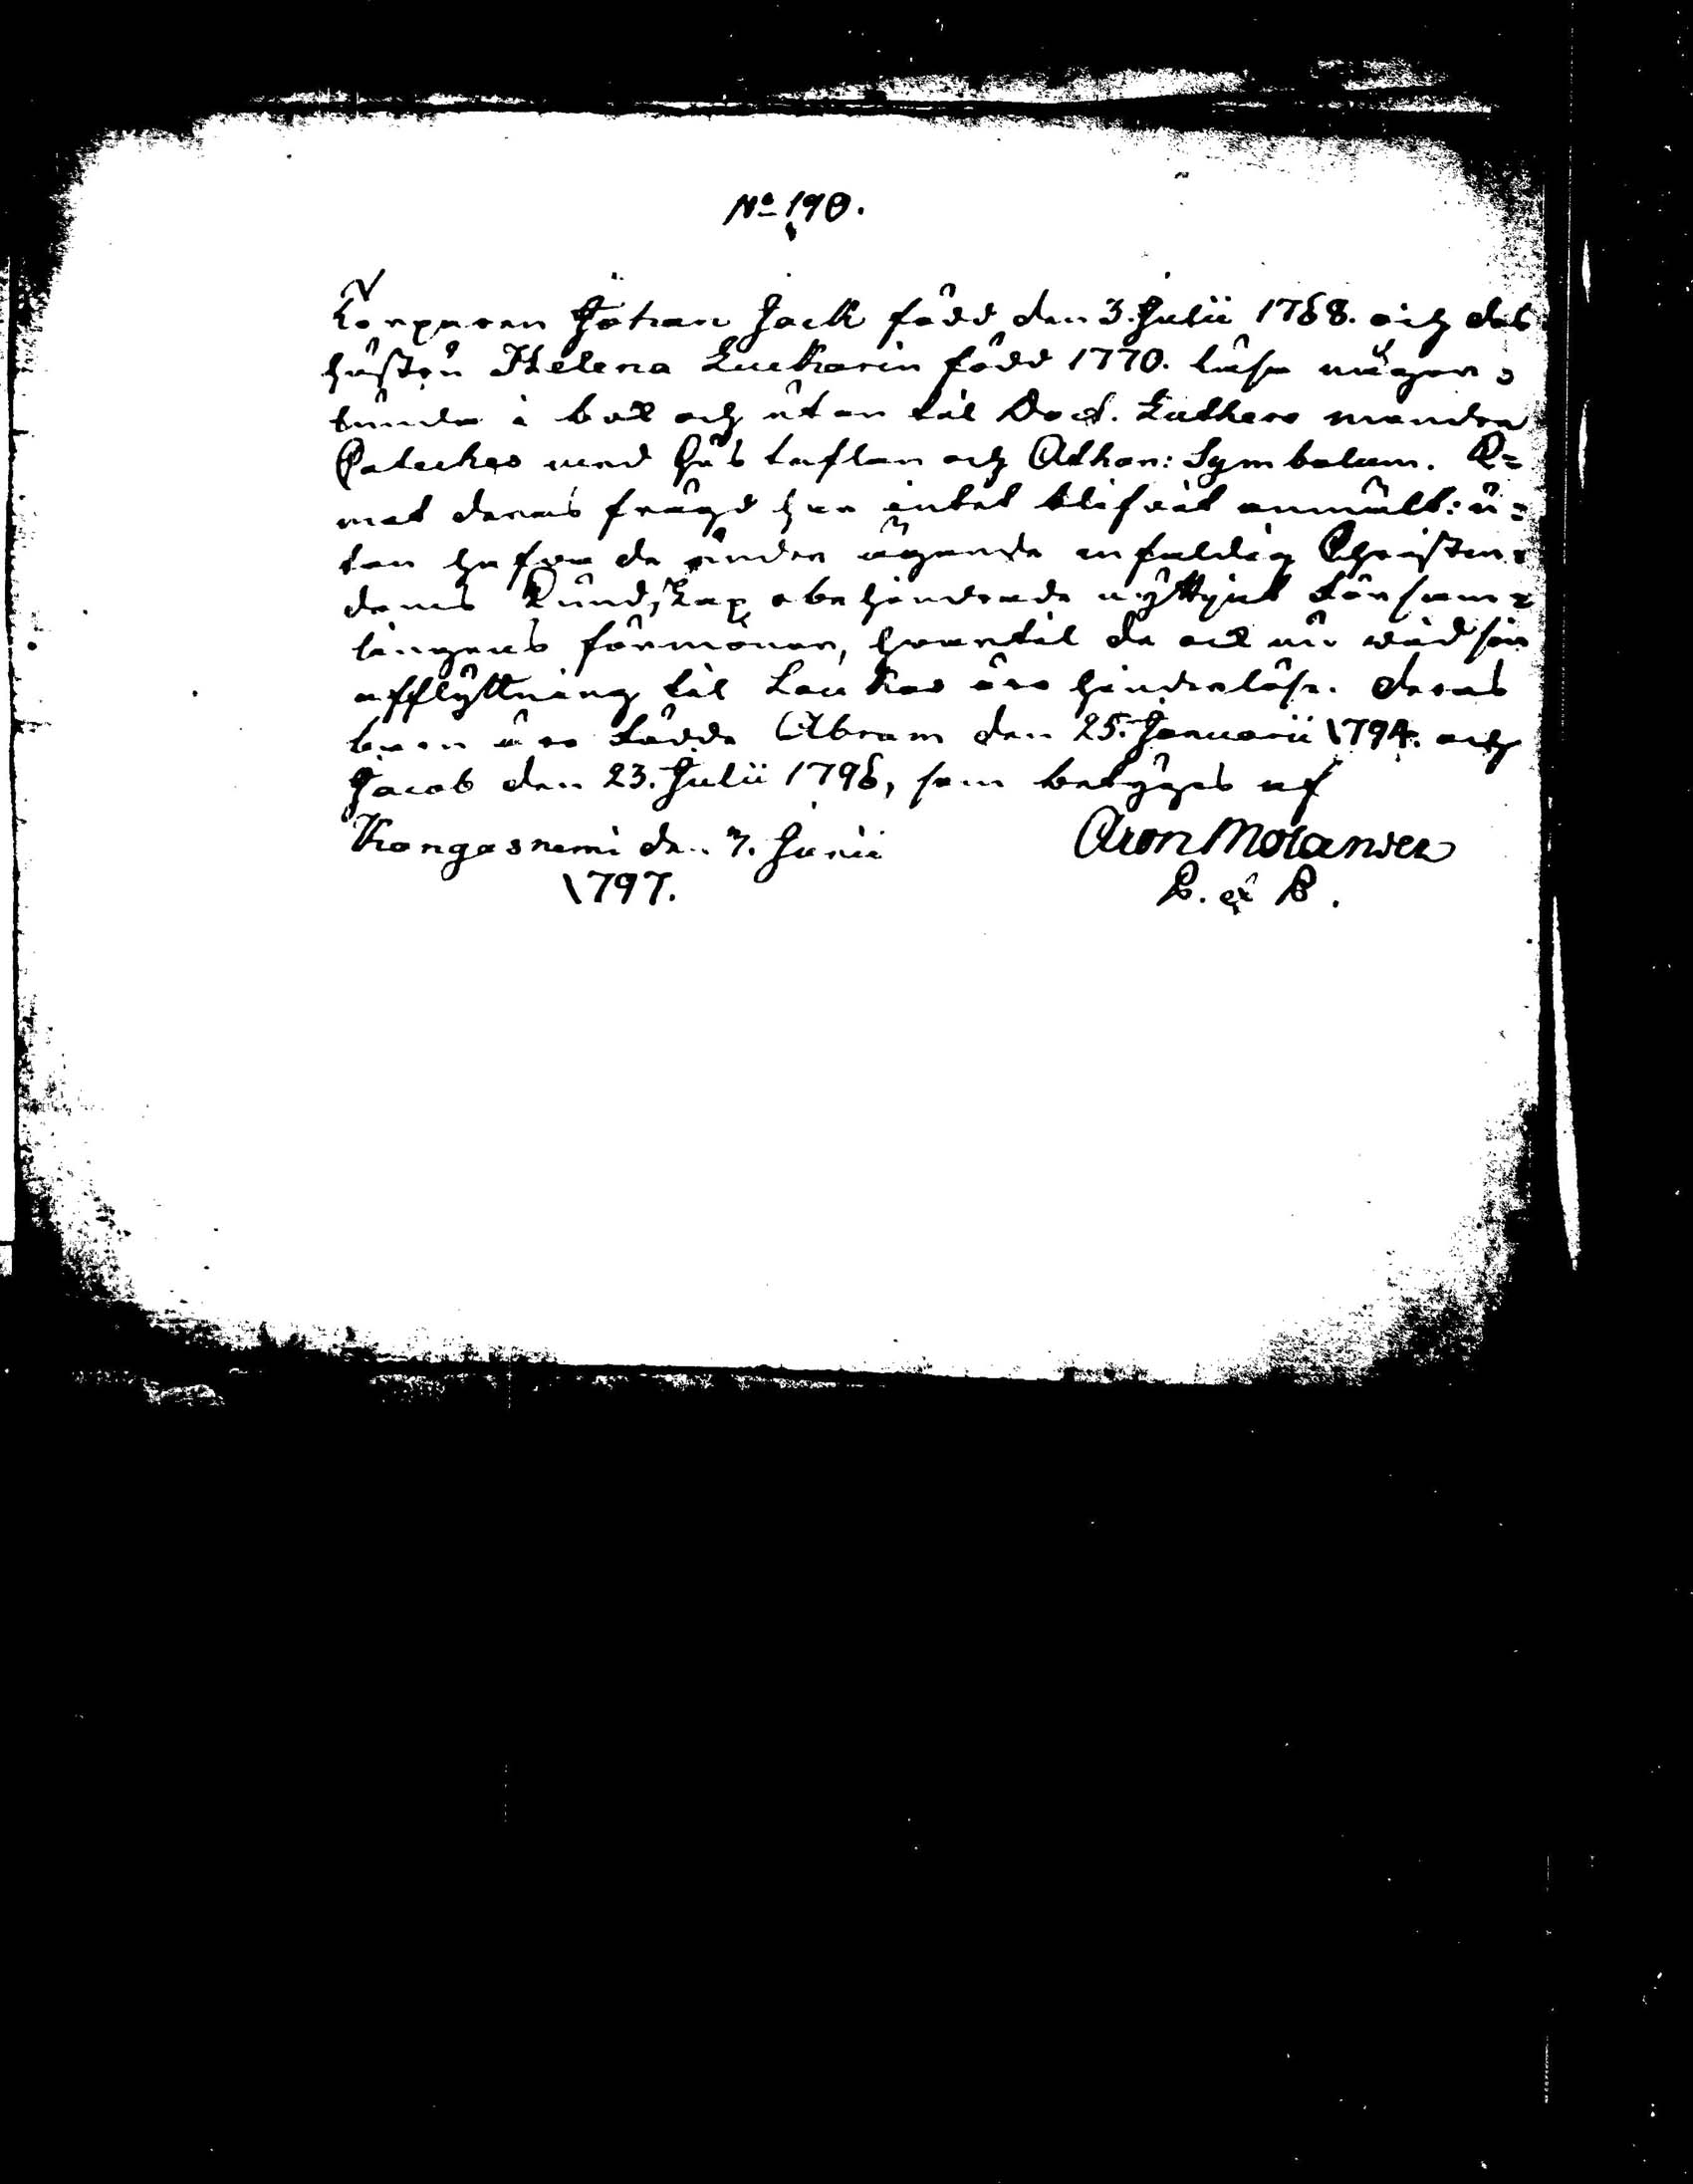 No 190.
Torparen Johan Jack född den 3. Julii 1768. och des
hustru Helena Luckarin född 1770. läsa någor=
lunda i bok och utan til Doct. Lutheri mindra
Cateches med hustaflan och Athan: Symbolum. O=
mot deras frägd har intet blifvit anmält: u=
tan hafva de under ägande enfaldig Christen=
doms Kundskap obehindrade nyttjat Församm=
lingens förmoner, hvartil de ock nu wid sin
afflyttning til Laukas äro hinderlöse. deras
barn äro födde Abram den 25. Januarii 1794. och
Jacob den 23. Julii 1796, som betygas af
Kangasnemi den 7. Junii Aron Molander
1797. P. et P.